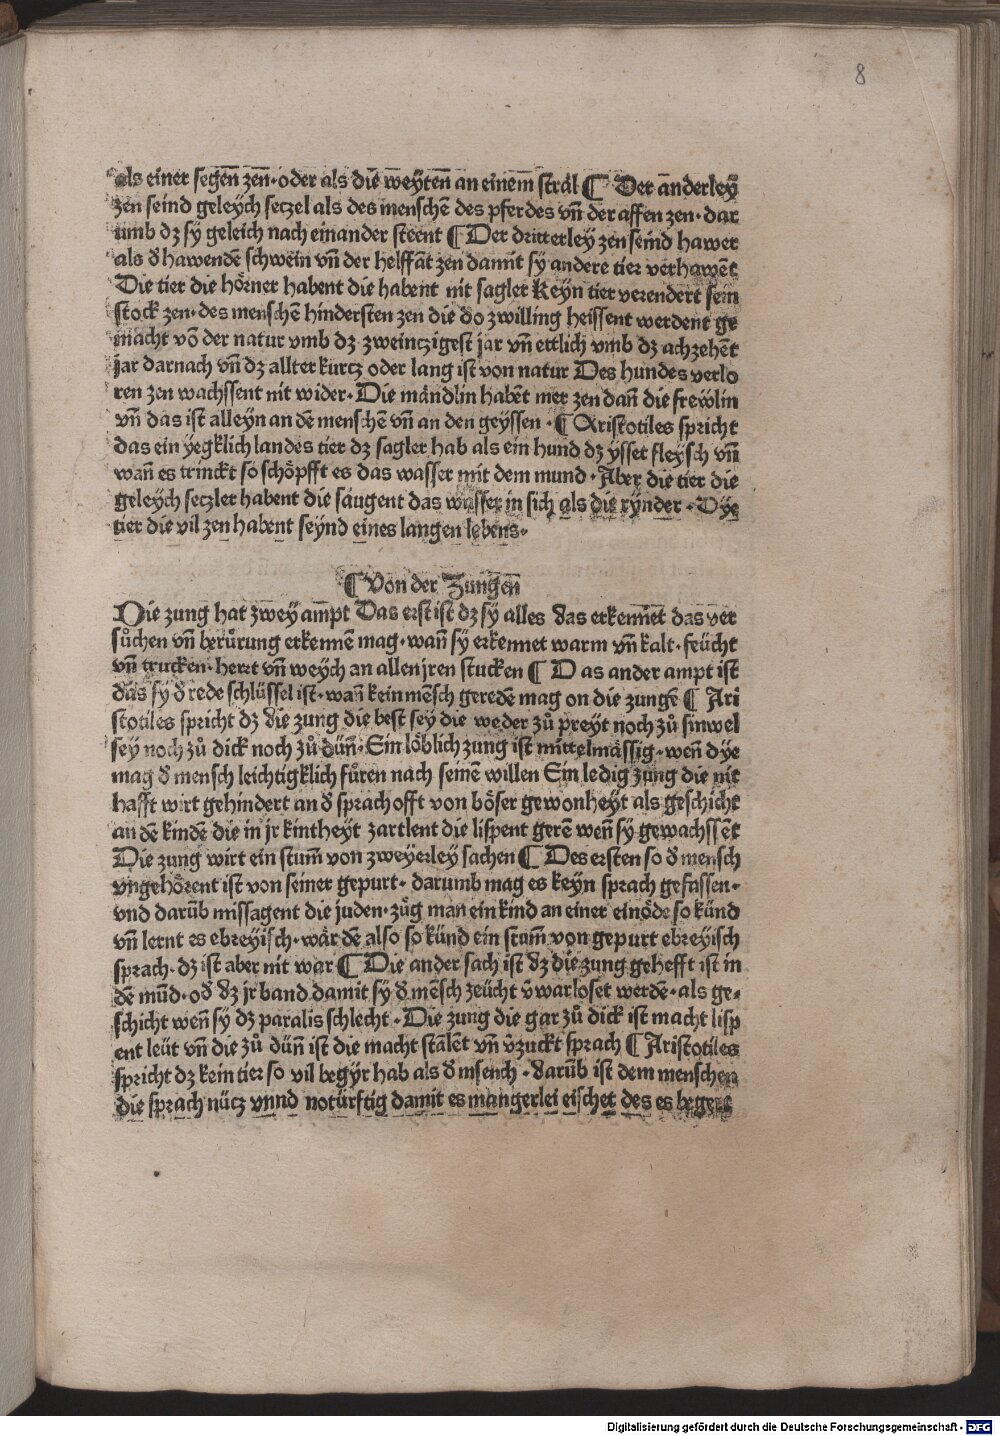 8
als einer segen̄ zen̄·oder als die weÿten̄ an einem̄ strāl ¶ Der anderleÿ
zen seind geleÿch setzel als des menschē des pferdes vn̄ der affen zen·dar
umb dz sÿ geleich nach einander steent ¶ Der dritterleÿ zen seind hawer
als d̓ hawendē schwein vn̄ der helffāt zen damit sÿ andere tier verhawēt
Die tier die hörner habent die habent nit sagler Keÿn tier verendert sein
stock zen·des menschē hindersten zen die do zwilling heissent werdent ge
macht vō der natur vmb dz zweinczigest jar vn̄ ettlich vmb dz achzehēt
jar darnach vn̄ dz allter kurcz oder lang ist von natur Des hundes verlo
ren zen wachssent nit wider·Die mändlin habēt mer zen dan̄ die frewlin
vn̄ das ist alleÿn an dē menschē vn̄ an den geÿssen·¶ Aristotiles spricht
das ein ÿegklich landes tier dz sagler hab als ein hund dz ÿsset fleÿsch vn̄
wan̄ es trinckt so schöpfft es das wasser mit dem mund·Aber die tier die
geleÿch seczler habent die saugent das wasser in sich als die rÿnder·Dÿe
tier die vil zen habent seÿnd eines langen lebens·
¶ Von der Zungen̄
Die zung hat zweÿ ampt Das erst ist dz sÿ alles das erkennet das ver
sůchen vn̄ berůrung erkennē mag·wan̄ sÿ erkennet warm vn̄ kalt·feücht
vn̄ trucken·hert vn̄ weÿch an allen jren stucken ¶ Das ander ampt ist
das sÿ d̓ rede schlüssel ist·wan̄ kein mēsch geredē mag on die zunge ¶ Ari
stotiles spricht dz die zung die best seÿ die weder zů preÿt noch zů sinwel
seÿ noch zů dick noch zů dün̄·Ein löblich zung ist mittelmässig·wen̄ dÿe
mag d̓ mensch leichtigklich fůren nach seinē willen Ein ledig zung die nit
hafft wirt gehindert an d̓ sprach offt von böser gewonheÿt als geschicht
an dē kindē die in jr kintheÿt zartlent die lispent gerē wen̄ sÿ gewachssēt
Die zung wirt ein stum̄ von zweÿerleÿ sachen ¶ Des ersten so d̓ mensch
vngehörent ist von seiner gepurt·darumb mag es keÿn sprach gefassen·
vnd darūb missagent die juden·zůg man ein kind an einer einöde so künd
vn̄ lernt es ebreÿisch·wär dē also so künd ein stum̄ von gepurt ebreÿisch
sprach·dz ist aber nit war ¶ Die ander sach ist dz die zung gehefft ist in
dē mūd·od̓ dz jr band damit sÿ d̓ mēsch zeücht v̄warloset werdē·als ge-
schicht wen̄ sÿ dz paralis schlecht·Die zung die gar zů dick ist macht lisp
ent leüt vn̄ die zů dün̄ ist die macht stālēt vn̄ v̄zuckt sprach ¶ Aristotiles
spricht dz kein tier so vil begÿr hab als d̓ msench·darūb ist dem menschen
die sprach nücz vnnd notürftig damit es mangerlei eischet des es begert
Digitalisierung gefördert durch die Deutsche Forschungsgemeinschaft - DFG